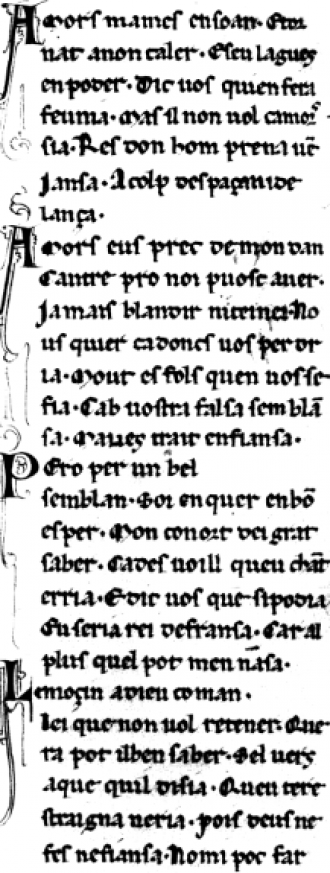 Amors mames ensoan. Etor
nat anon caler. Eseu lagues
enpoder. Dic uos quien fera
feunia. Mas il non uol camors.
sia. Res don hom prena uē
Jansa. Acolp despaza ni de
lança.
Amors eus prec de mon dan
Cautre pro noi puosc auer.
Ja mais blandir nite incz. No
us quier cadoncs uos per dr
ia. Mout es fols quen uos se
fia. Cab uostra falsa semblā
sa. Maues trait enfiansa.
Pero per un bel
semblan. Soi enquer enbō
esper. Mon conort dei grat
saber. Cades uoill queu chāt
erria. E dic uos que sipodia
Eu seria rei defransa. Car al
plus quel pot men nāsa.
Lemoçin adieu coman.
Lei que non uol retener. Que
ra pot ilben saber. Sel uers
aque quil disia. Queu tere
straigna ueria. pois deus ne
fes nefiansa. No mi poc far